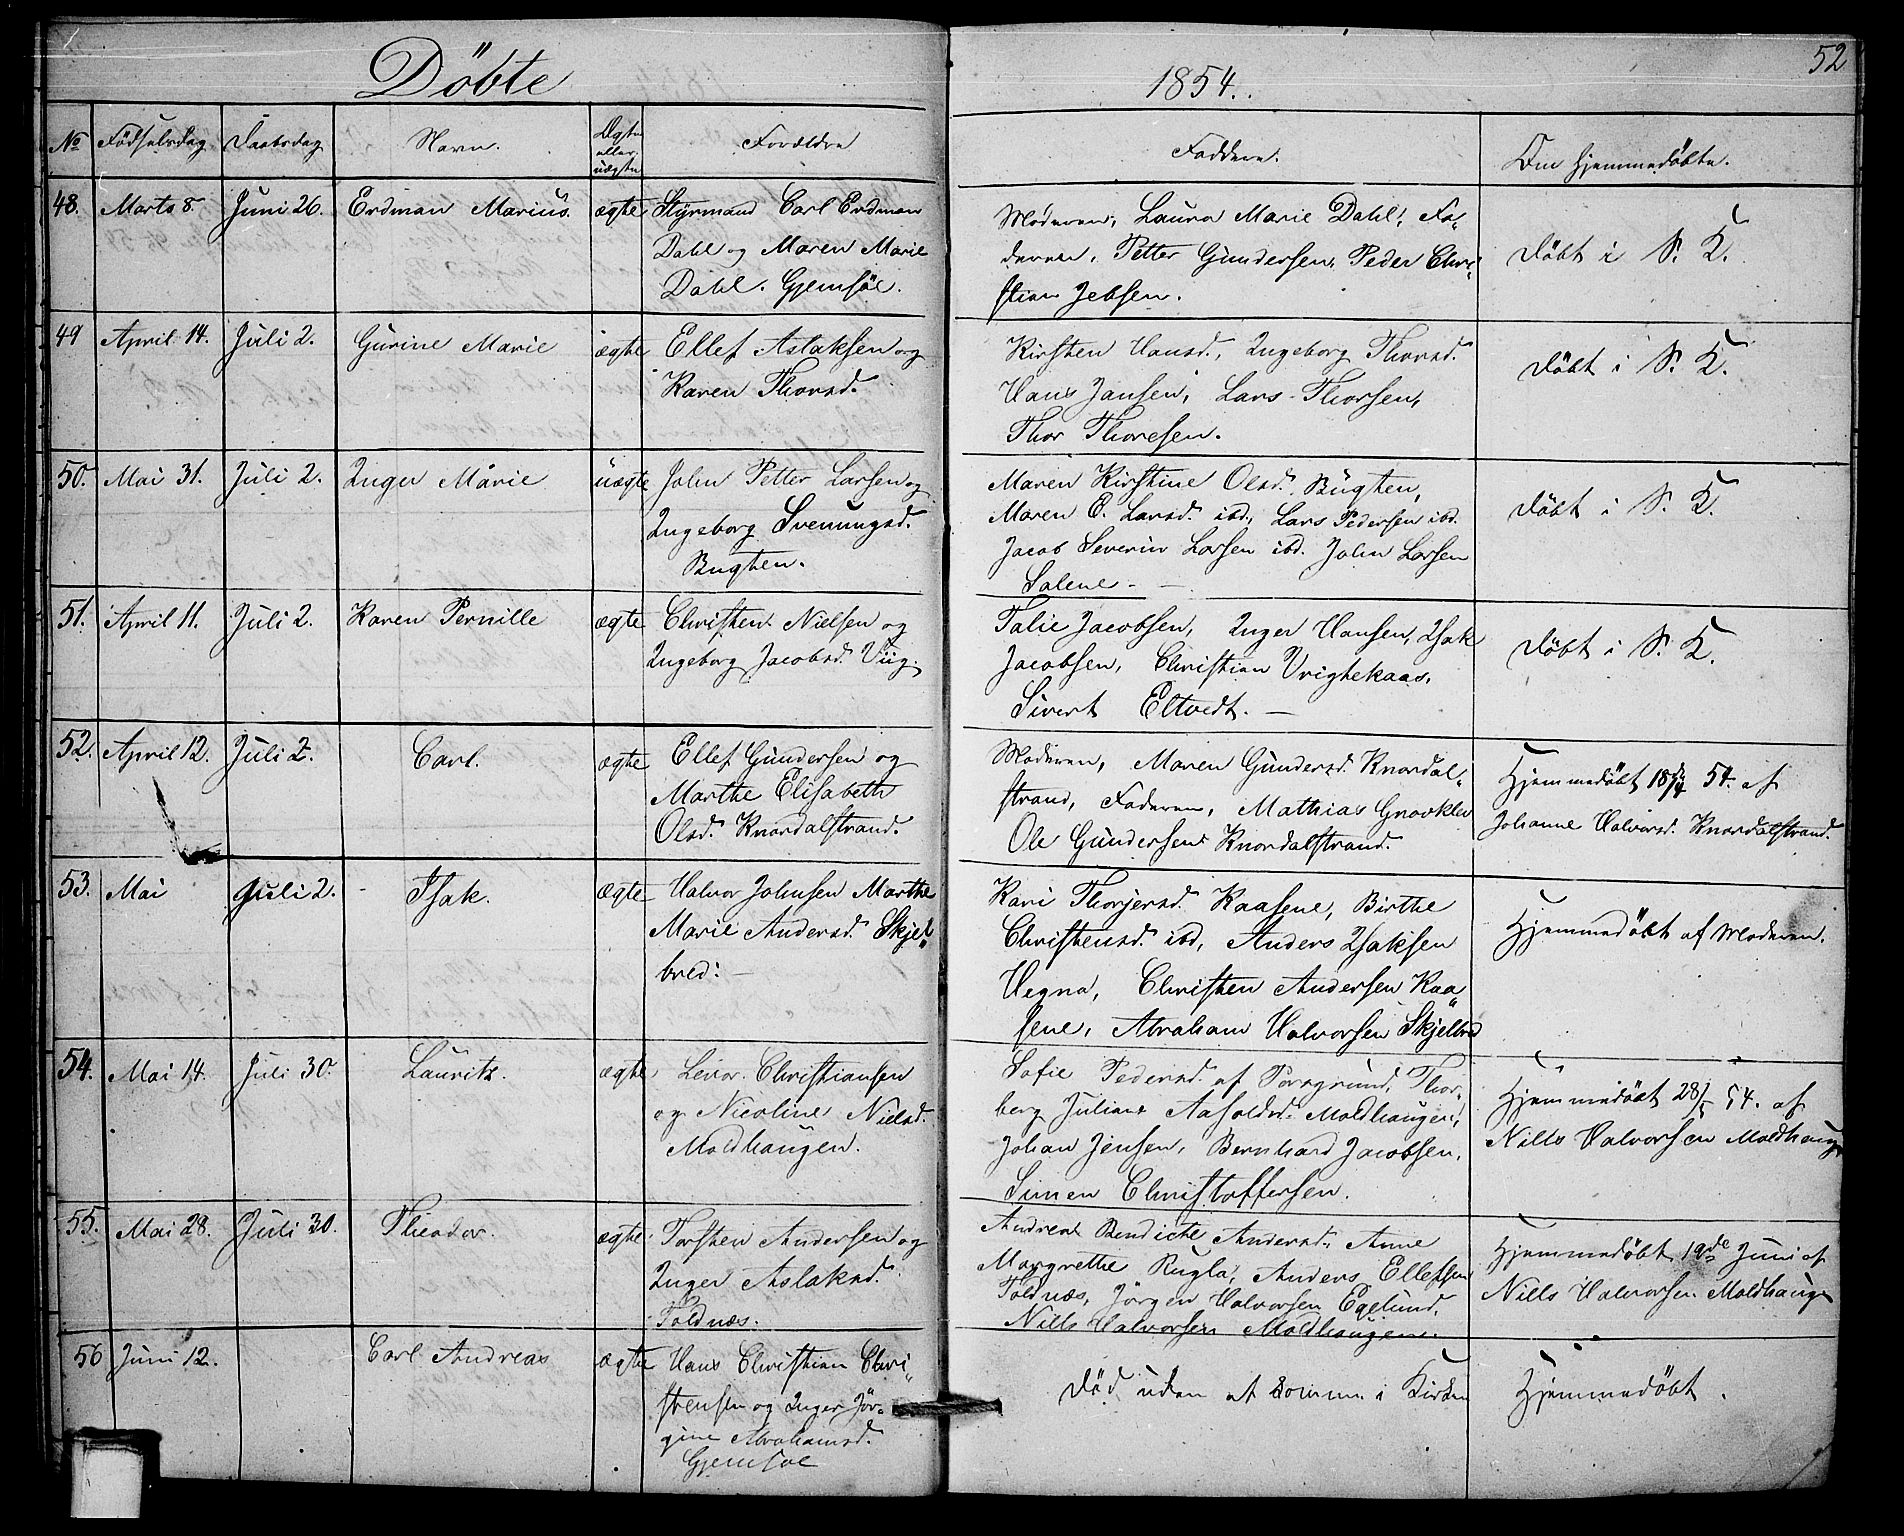 Döbte
1854.
52
No Födselsdag Daabsdag Navn. Ægte eller uægte Forældre Faddere. Om hjemmedöbte.
48. Marts 8. Juni 26. Erdman Marius. ægte Styrmand Carl Erdman
Dahl og Maren Marie
Dahl. Gjemsöe.
Moderen, Laura Marie Dahl, Fa-
deren, Petter Gundersen, Peder Chri-
stian Jebsen.
döbt i S. K.
49 April 14. Juli 2. Gurine Marie ægte Ellef Aslaksen og
Karen Thorsd.
Kirsten Hansd., Ingeborg Thorsd.
Hans Jansen, Lars Thorsen,
Thor Thoresen.
döbt i S. K.
50. Mai 31. Juli 2. Inger Marie uægte John Petter Larsen og
Ingeborg Svenungsd.
Bugten.
Maren Kirstine Olsd. Bugten,
Maren E. Larsd. ibd., Lars Pedersen ibd.
Jacob Severin Larsen ibd. John Larsen
Salene. —
döbt i S. K.
51. April 11. Juli 2. Karen Pernille ægte Christen Nielsen og
Ingeborg Jacobsd. Viig.
Talie Jacobsen, Inger Hansen, Isak
Jacobsen, Christian Vrightekaas,
Sivert Eltvedt. —
döbt i S. K.
52. April 12. Juli 2. Carl. ægte Ellef Gundersen og
Marthe Elisabeth
Olsd. Knardalstrand.
Moderen, Maren Gundersd. Knardal-
strand, Faderen, Mathias Graaklev
Ole Gundersen Knardalstrand.
Hjemmedöbt 18de/4 54. af
Johanne Halvorsd. Knardalstrand.
53. Mai Juli 2. Isak. ægte Halvor Johnsen Marthe
Marie Andersd. Skjel-
bred: —
Kari Thorjersd. Kaasene, Birthe
Christensd. ibd, Anders Isaksen
Hegna, Christen Andersen Kaa-
sene, Abraham Halvorsen Skjelbred
Hjemmedöbt af Moderen.
54. Mai 14. Juli 30. Lauritz. ægte Levor Christiansen
og Nicoline Nielsd.
Moldhaugen.
Sofie Pedersd. af Porsgrund, Thor-
berg Juliane Aasoldsd. Moldhaugen,
Johan Jensen, Bernhard Jacobsen,
Simen Christoffersen.
Hjemmedöbt 28/5 54. af
Nills Halvorsen Moldhaug
55. Mai 28. Juli 30. Theodor. ægte Torsten Andersen og
Inger Aslaksd.
Toldnæs.
Andrea Bendicte Andersd., Anne
Margrethe Rugla, Anders Ellefsen
Toldnæs, Jörgen Halvorsen Egelund,
Nills Halvorsen Moldhaugen.
Hjemmedöbt 19de Juni af
Nills Halvorsen Moldhaug
56 Juni 12. Carl Andreas ægte Hans Christian Chri-
stensen og Inger Jör-
gine Abrahamsd.
Gjemsöe
Död uden at komme i Kirken
Hjemmedöbt.